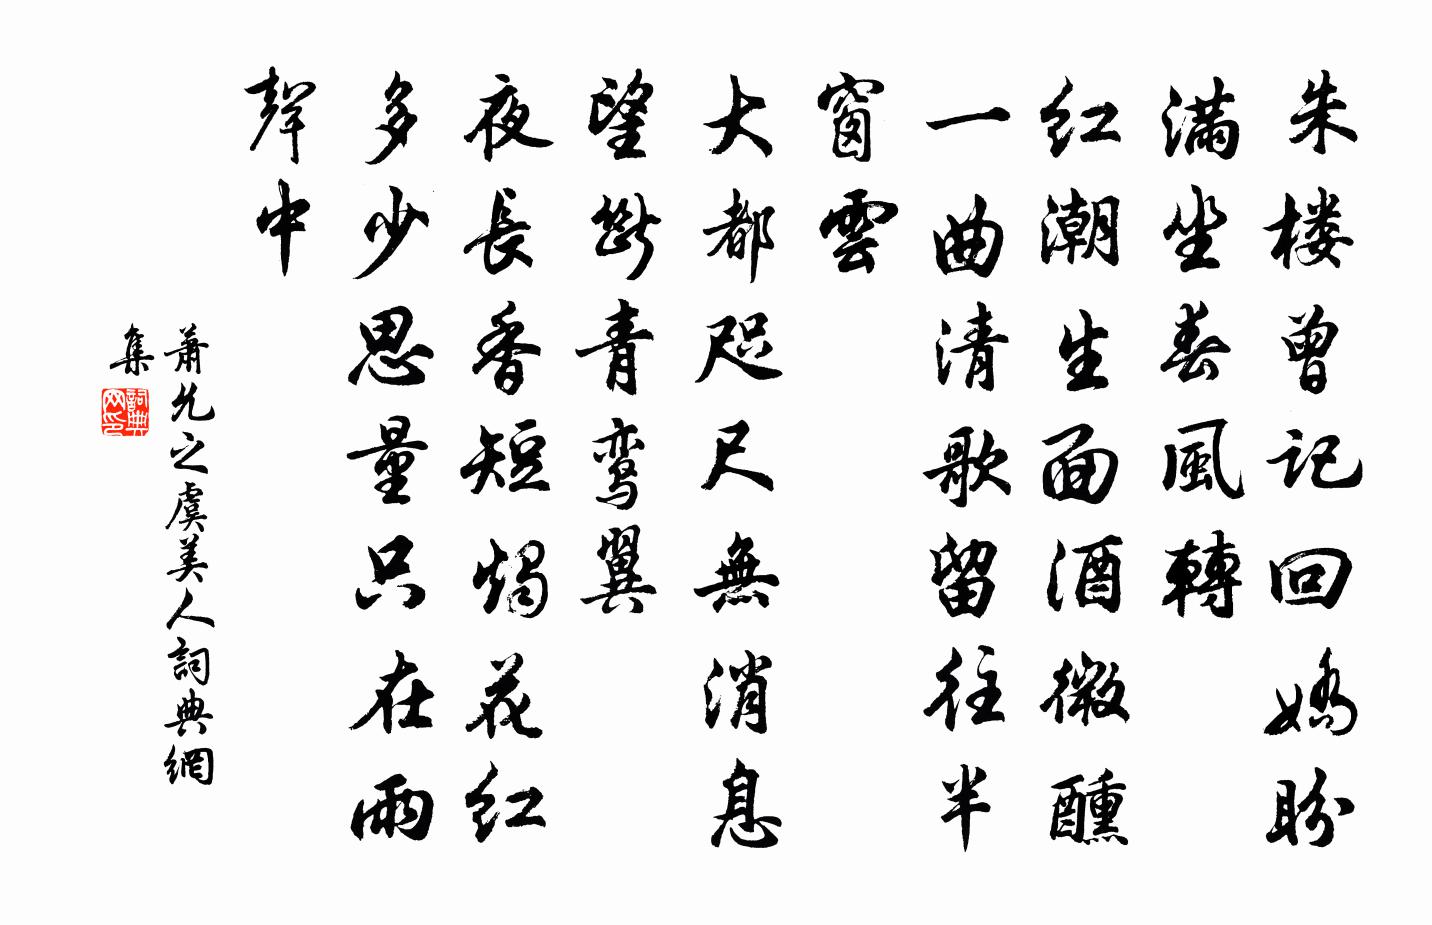 朱楼曾記回嬌盼
满坐春風轉
红潮生面酒微醺
一曲清歌留往半
窗雲
大都咫尺無消息
望斷青鸾翼
夜長香短燭花红
多少思量只在雨
聲中
蕭允之虞美人詞典網
集
詞典
网印